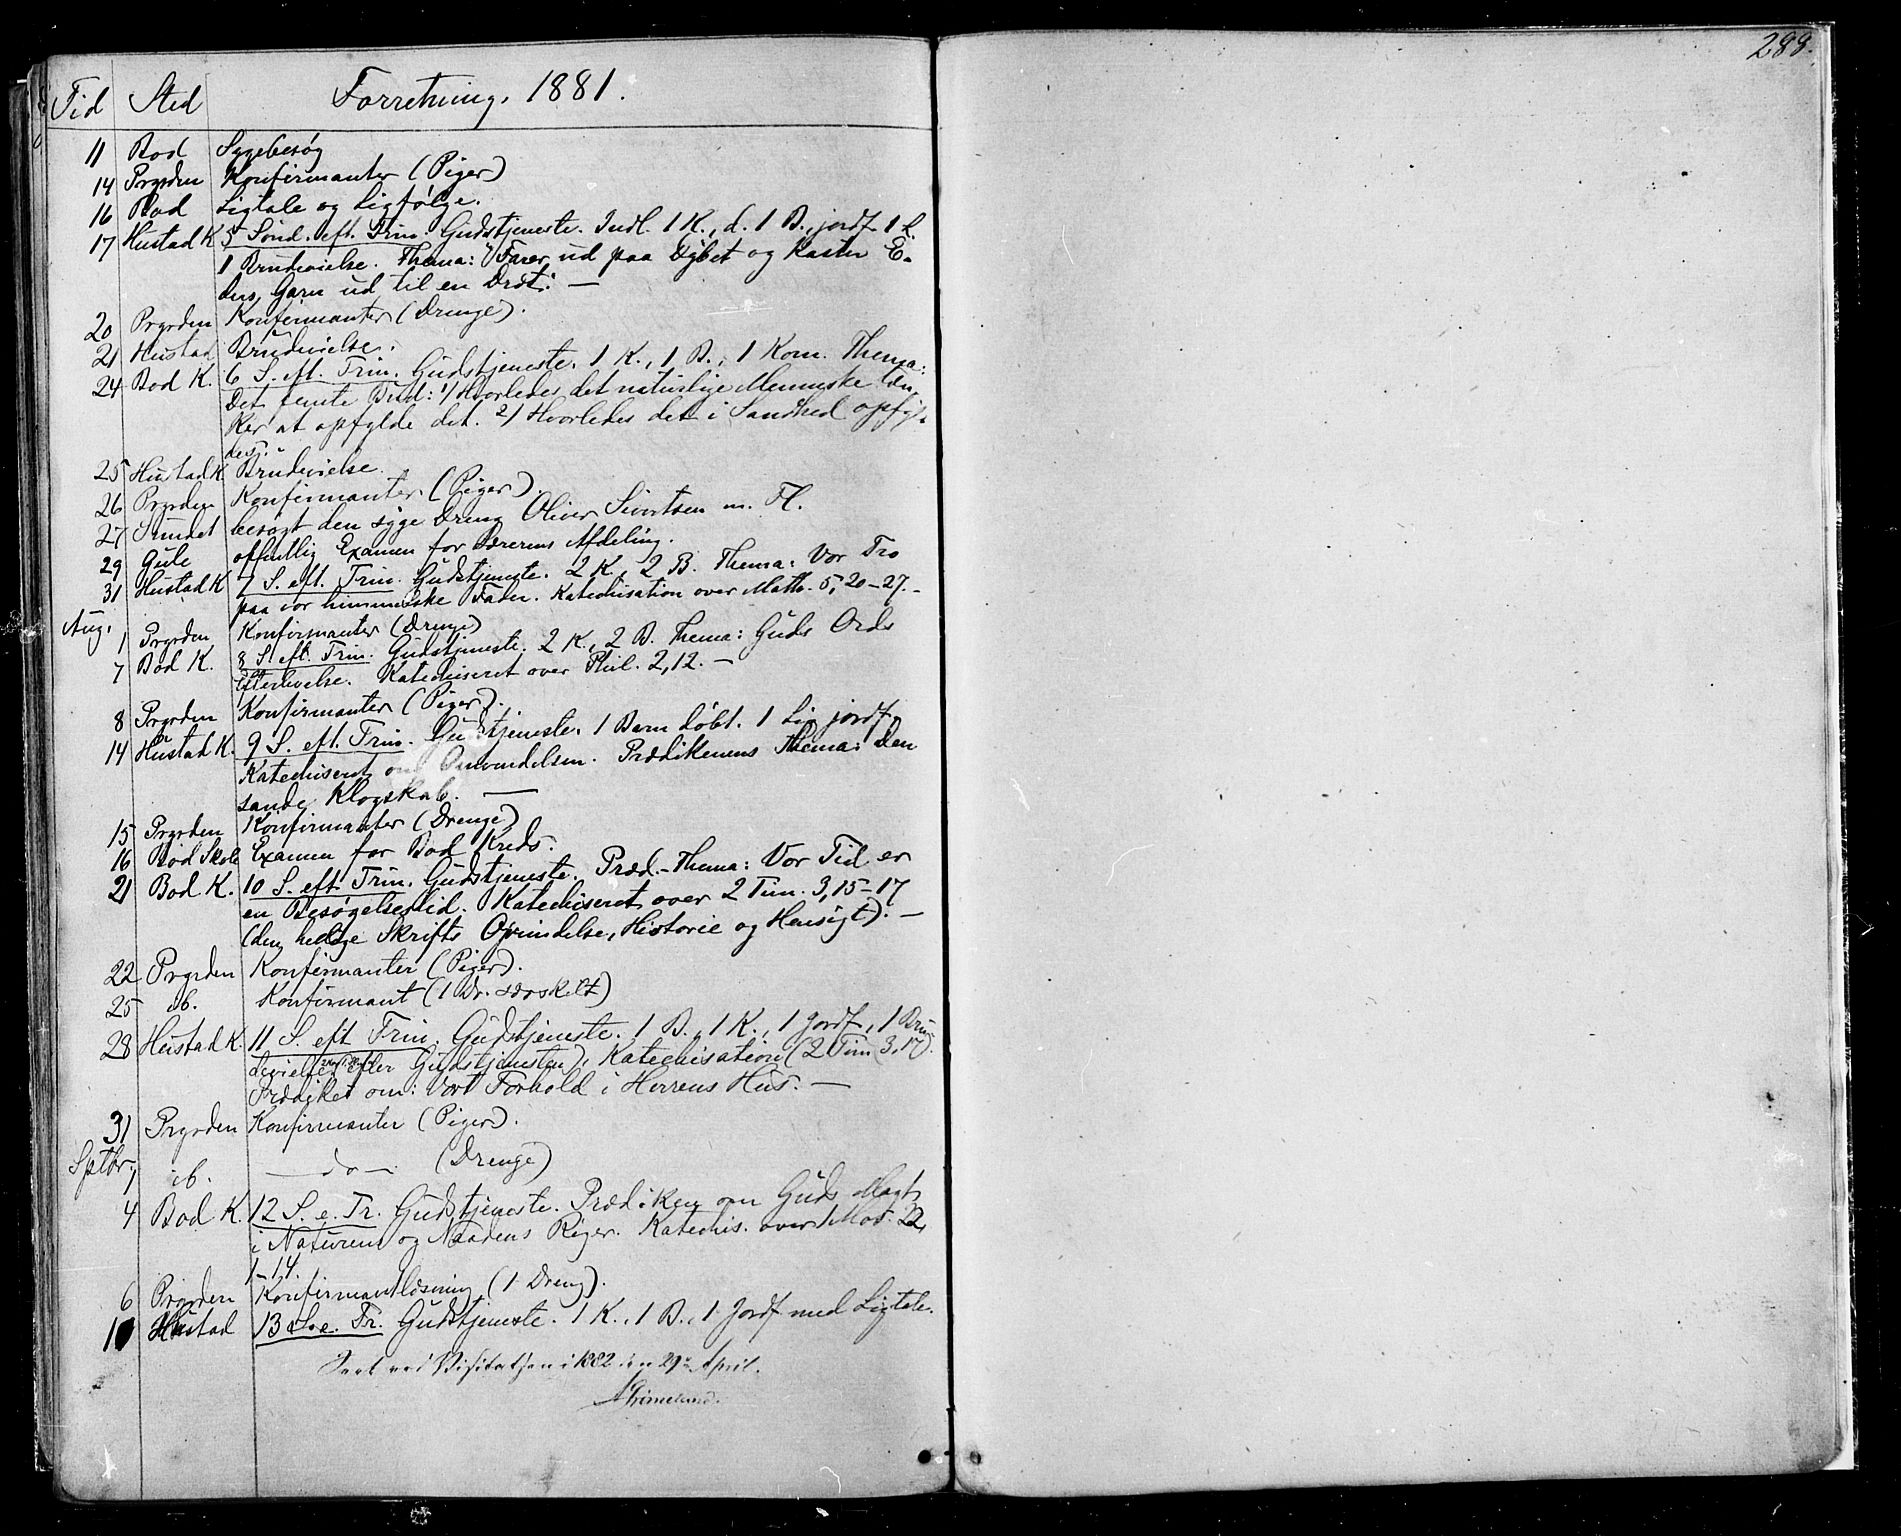 288.
Tid Sted Forretning. 1881.
11 Bod Sygebesøg
14 Prgrden Konfirmanter (Piger)
16 Bod Ligtale og Ligfølge.
17 Hustad K 5 Sönd. eft. Trin. Gudstjeneste. Indl. 1 K., d. 1 B., jordf. 1 L.
1 Brudevielse. Thema: "Farer ud paa Dybet og kaster E-
ders Garn ud til en Dræt." —
20 Prgrden Konfirmanter (Drenge).
21 Hustad Brudevielse.
24 Bod K. 6 S. eft. Trin. Gudstjeneste. 1 K., 1 B., 1 Kom. Thema:
Det femte Bud: 1) Hvorledes det naturlige Menneske tæn-
ker at opfylde det. 2) Hvorledes det i Sandhed opfyl-
des.
25 Hustad K Brudevielse.
26 Prgrden Konfirmanter (Piger).
27 Sundet besøgt den syge Dreng Oliver Sivertsen m. Fl.
29 Gule offentlig Examen for Lærerens Afdeling.
31 Hustad K 7 S. eft. Trin. Gudstjeneste. 2 K., 2 B. Thema: Vor Tro
paa vor himmelske Fader. Katechisation over Matth. 5, 20-27. -
Aug. 1 Prgrden Konfirmanter (Drenge)
7 Bod K. 8 S. eft. Trin. Gudstjeneste. 2 K., 2 B. Thema: Guds Ords
Efterlevelse. Katechiseret over Phil. 2, 12. —
8 Prgrden Konfirmanter (Piger).
14 Hustad K. 9 S. eft. Trin. Gudstjeneste. 1 Barn døbt. 1 Lig jordf.
Katechiseret om Omvendelsen. Prædikenens Thema: Den
sande Klogskab. —
15 Prgrden Konfirmanter (Drenge)
16 Bod Skole Examen for Bod Kreds.
21 Bod K. 10 S. eft. Trin. Gudstjeneste. Præd.-Thema: Vor Tid er
en Besøgelsestid. Katechiseret over 2 Tim. 3, 15-17
(den hellige Skrifts Oprindelse, Historie og Hensigt). —
22 Prgrden Konfirmanter (Piger).
25 ib. Konfirmant (1 Dr. særskilt)
28 Hustad K. 11 S. eft Trin. Gudstjeneste. 1 B., 1 K., 1 Jordf., 1 Bru-
devielse (efter Gudstjenesten), Katechisation (2 Tim 3, 17).
Prædiket om: Vort Forhold i Herrens Hus. —
31 Prgrden Konfirmanter (Piger).
Sptbr. 1 ib. — do — (Drenge)
4 Bod K. 12 S. e. Tr. Gudstjeneste. Prædiken om Guds Magt
i Naturens og Naadens Riger. Katechis. over 1 Mos. 22,
1-14.
6 Prgrden Konfirmantlæsning (1 Dreng).
11 Hustad 13 S. e. Tr. Gudstjeneste. 1 K., 1 B., 1 Jordf med Ligtale.
Seet ved Visitatsen i 1882 den 29de April.
Grimelund.